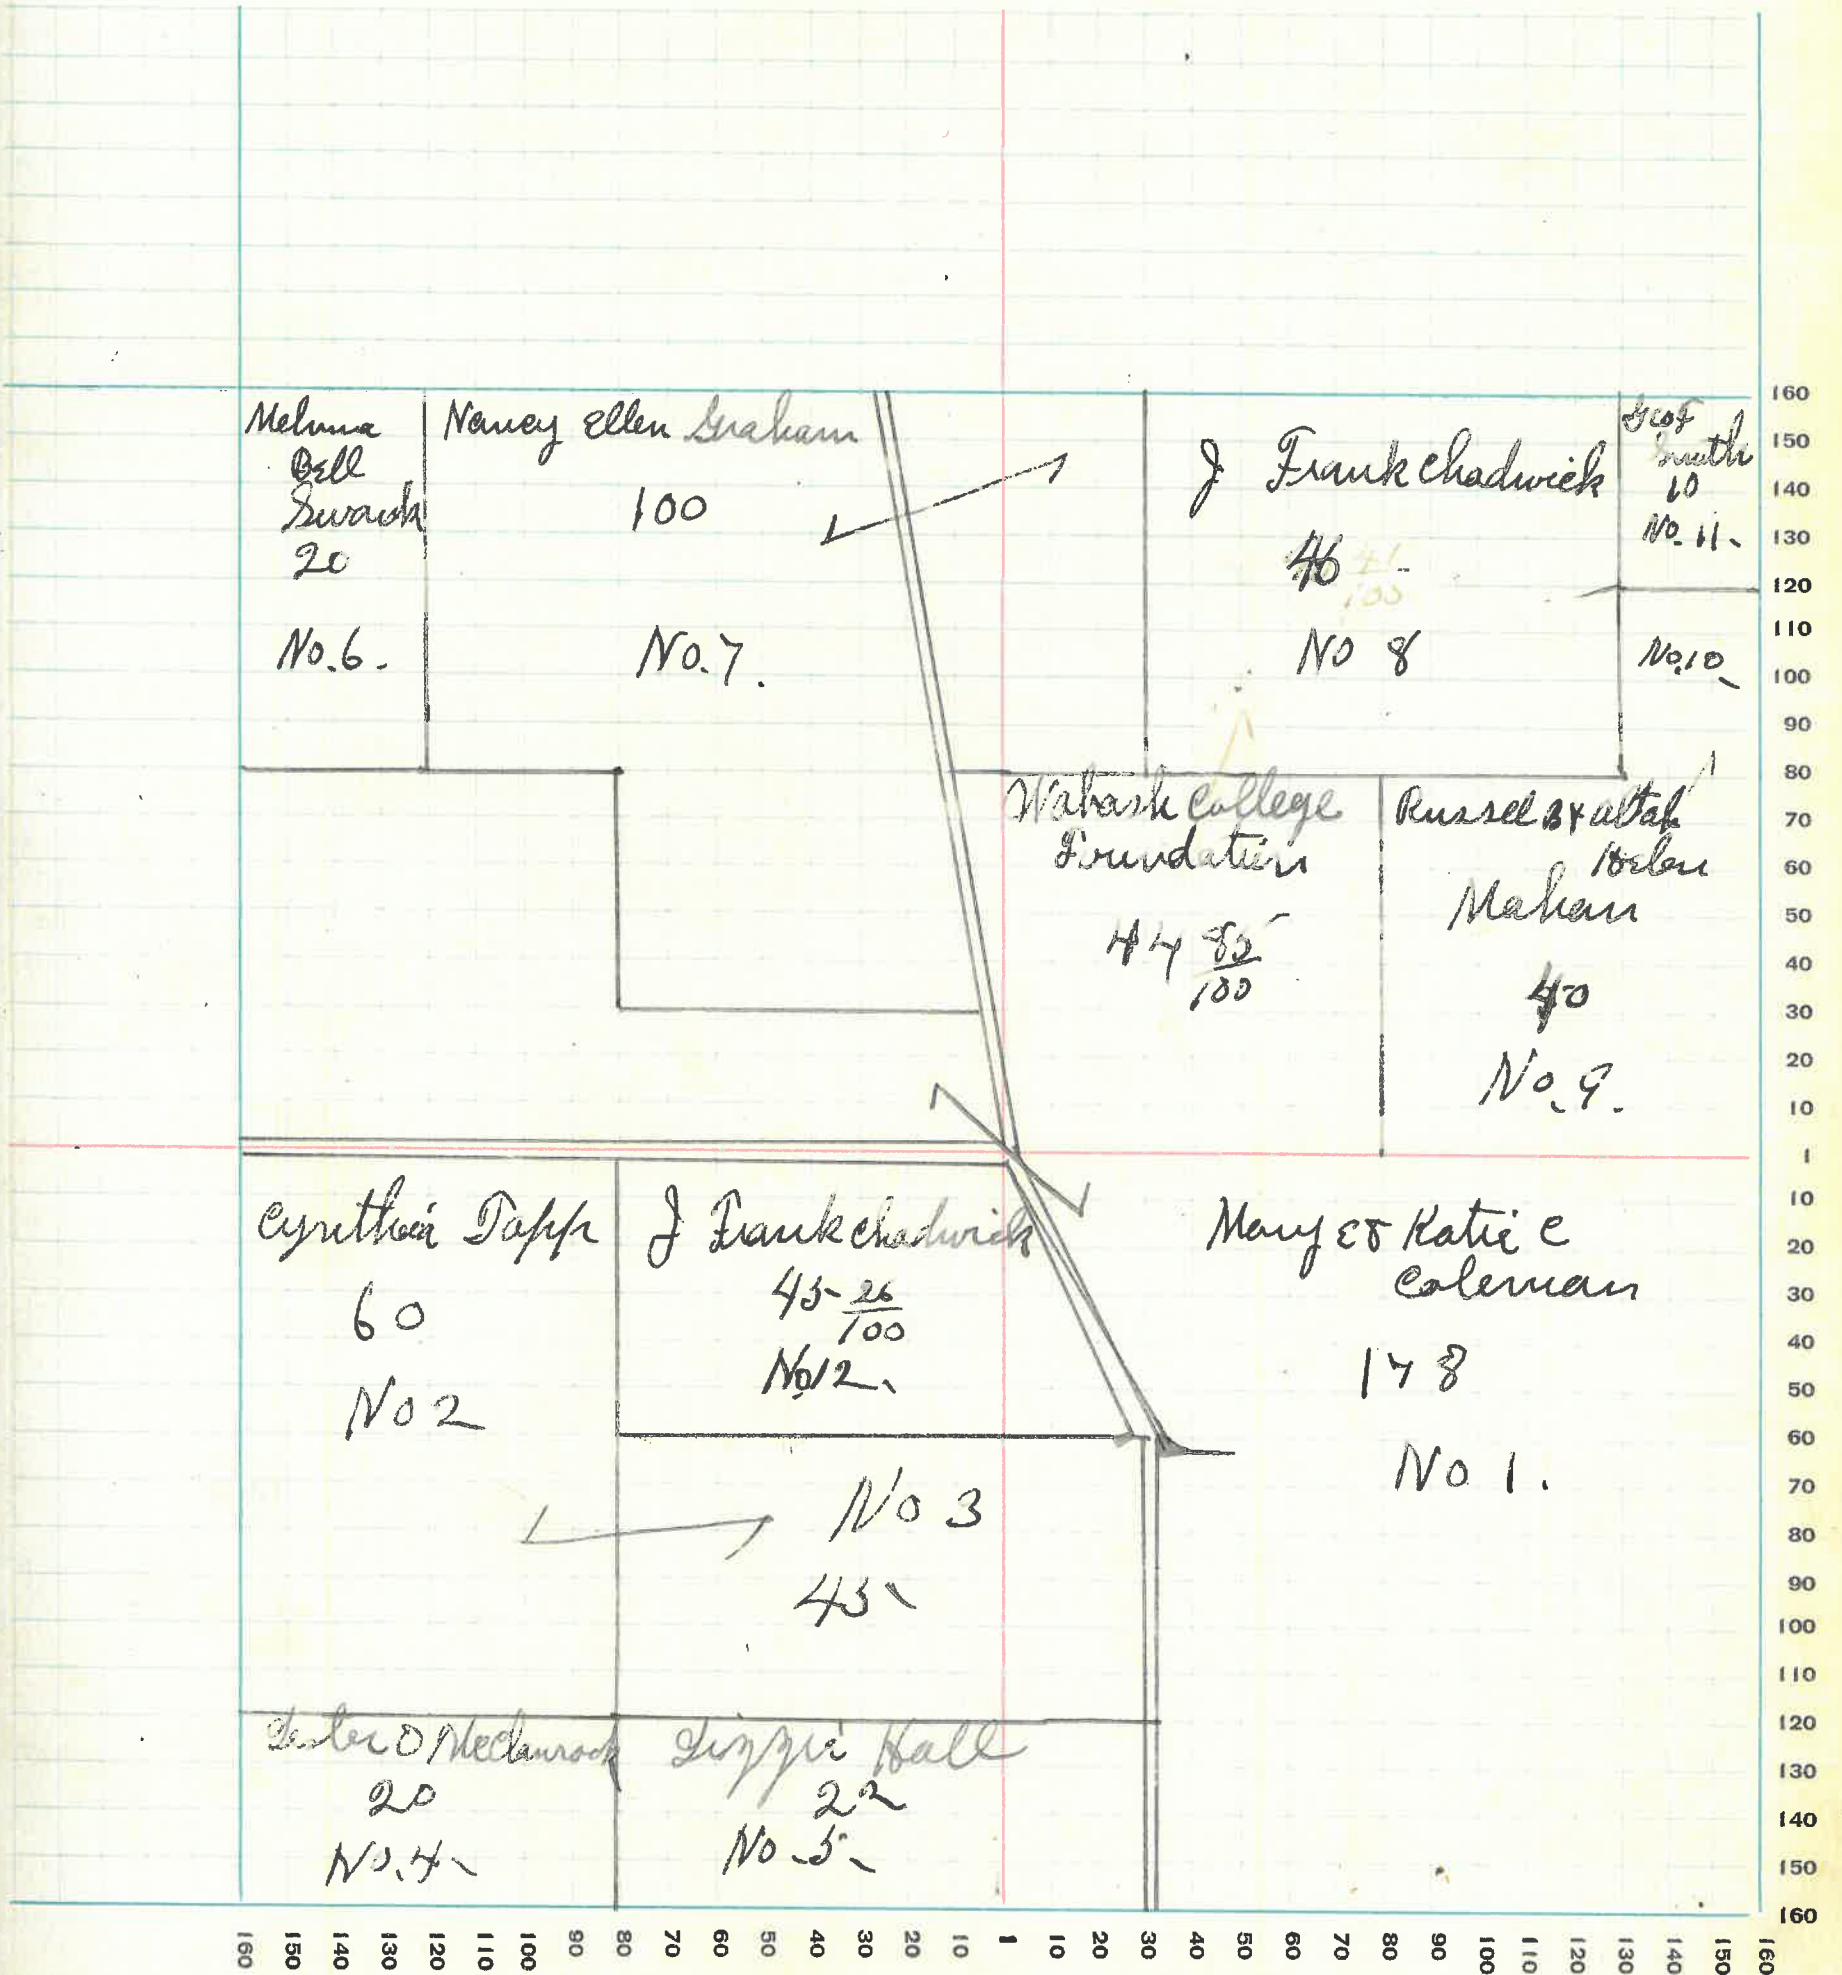 Nancy Ellen Graham
100
No. 7.
Bell
20
No. 6.
J Frank Chadwick
46
No 8
Smith
10
No. 11.
No. 10
Wabash College
Foundation
44 85/100
Russel B & Altah
Helen
Mahan
40
No. 9.
Cynthia Tapp
60
No 2
J Frank Chadwick
45 26/100
No 12.
Mary E & Katie C
Coleman
178
No 1.
No 3
45
Lester O
20
No. 4
Lizzie Hall
22
No 5
160
150
140
130
120
110
100
90
80
70
60
50
40
30
20
10
1
10
20
30
40
50
60
70
80
90
100
110
120
130
140
150
160
160 150 140 130 120 110 100 90 80 70 60 50 40 30 20 10 1 10 20 30 40 50 60 70 80 90 100 110 120 130 140 150 160